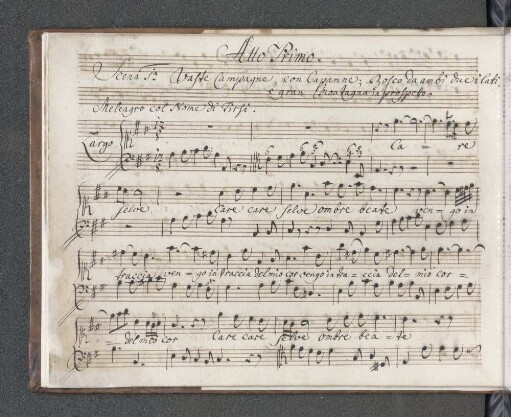 Atto Primo.
Scena Pa. Vaste Campagne, con Capanne; Bosco da ambi due i lati
e gran Montagna in prospetto.
Meleagro col Nome di Tirsi.
Largo
Ca - re
selve Care care selve ombre beate ven - go in
traccia ven - go in traccia del mio cor vengo in tra - ccia del - mio cor -
- del mio cor Care care selve ombre bea - te